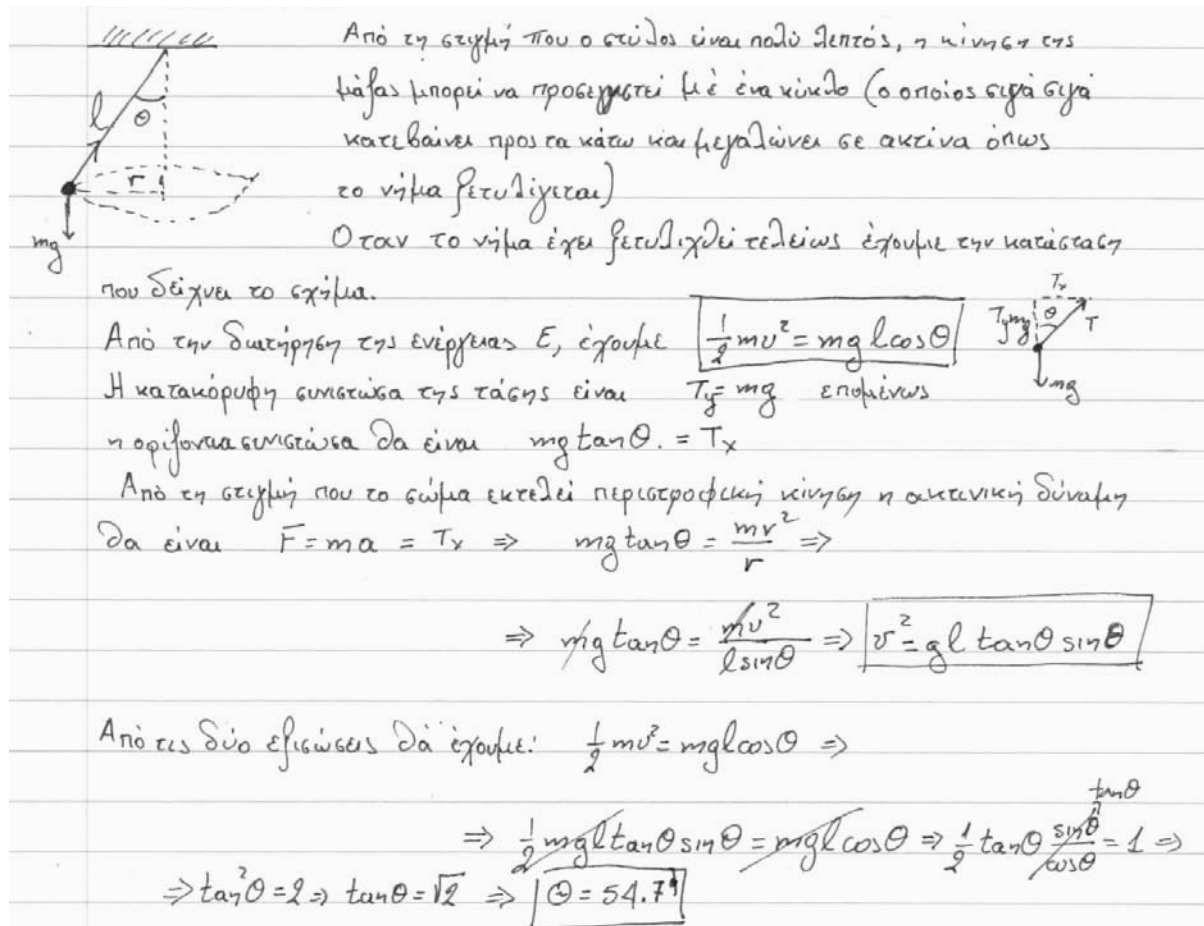 Από τη στιγμή που ο στύλος είναι πολύ λεπτός, η κίνηση της
μάζας μπορεί να προσεγγιστεί με ένα κύκλο (ο οποίος σιγά σιγά
κατεβαίνει προς τα κάτω και μεγαλώνει σε ακτίνα όπως
το νήμα ξετυλίγεται)
Οταν το νήμα έχει ξετυλιχθεί τελείως έχουμε την κατάσταση
που δείχνει το σχήμα.
l θ r mg
Από την διατήρηση της ενέργειας E, έχουμε ½mv² = mg l cosθ
Tx Ty mg θ T mg
Η κατακόρυφη συνιστώσα της τάσης είναι Ty = mg επομένως
η οριζόντια συνιστώσα θα είναι mg tanθ. = Tx
Από τη στιγμή που το σώμα εκτελεί περιστροφική κίνηση η ακτινική δύναμη
θα είναι F = ma = Tx ⇒ mg tanθ = mv²/r ⇒
⇒ mg tanθ = mv²/(l sinθ) ⇒ v² = gl tanθ sinθ
Από τις δύο εξισώσεις θα έχουμε: ½mv² = mgl cosθ ⇒
⇒ ½ mgl tanθ sinθ = mgl cosθ ⇒ ½ tanθ sinθ/cosθ = 1 ⇒
tanθ
⇒ tan²θ = 2 ⇒ tanθ = √2 ⇒ θ = 54.7°